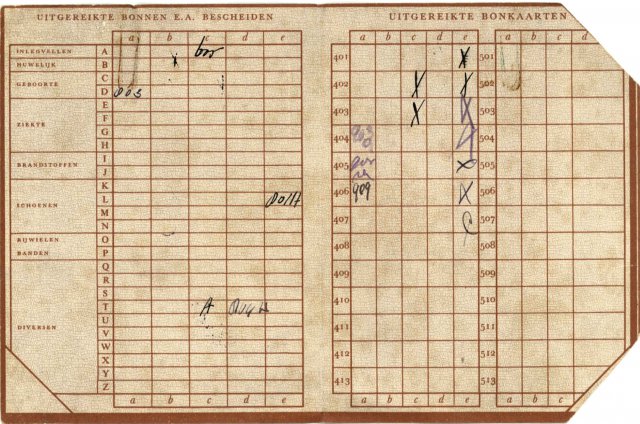 UITGEREIKTE BONNEN E.A. BESCHEIDEN
a b c d e
INLEGVELLEN A
HUWELIJK B
C
GEBOORTE D
E
F
ZIEKTE G
H
I
BRANDSTOFFEN J
K
L
SCHOENEN M
N
RIJWIELEN O
BANDEN P
Q
R
S
T
DIVERSEN U
V
W
X
Y
Z
a b c d e
UITGEREIKTE BONKAARTEN
a b c d e a b c d
401 501
402 502
403 503
404 504
405 505
406 909 506
407 507
408 508
409 509
410 510
411 511
412 512
413 513
a b c d e a b c d